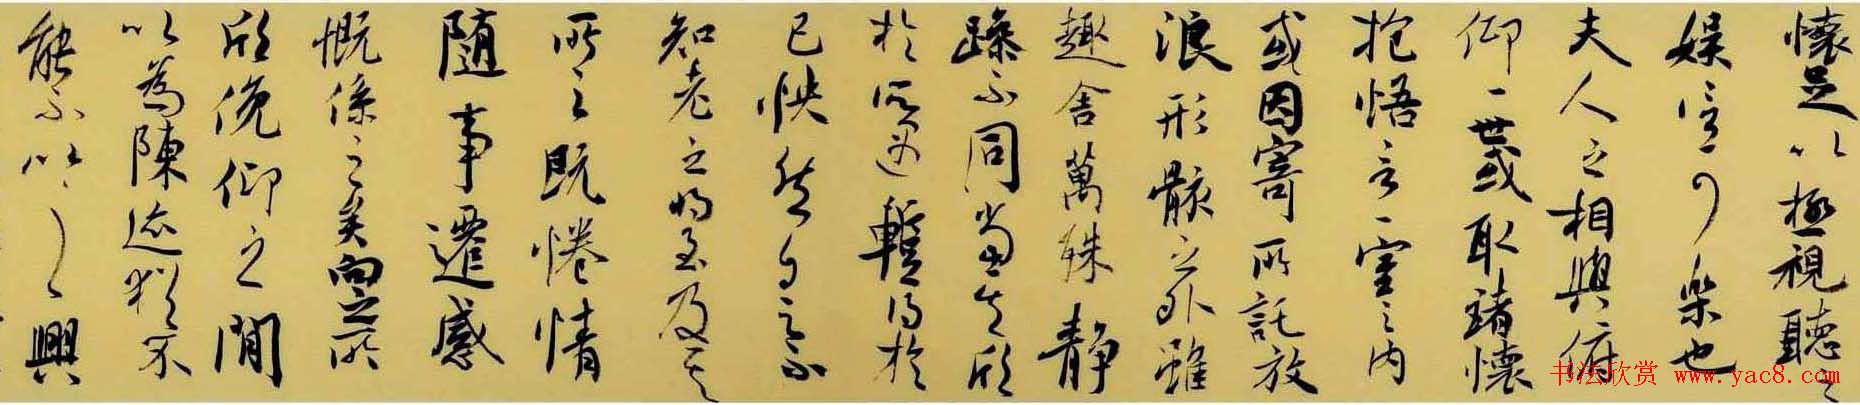 懷足以極視聽之
娱信可樂也
夫人之相與俯
仰一世或取諸懷
抱悟言一室之内
或因寄所託放
浪形骸之外雖
趣舍萬殊静
躁不同當其欣
於所遇暫得於
己怏然自足不
知老之將至及其
所之既惓情
随事遷感
慨係之矣向之所
欣俛仰之間
以為陳迹猶不
能不以之興
书法欣赏 www.yac8.com